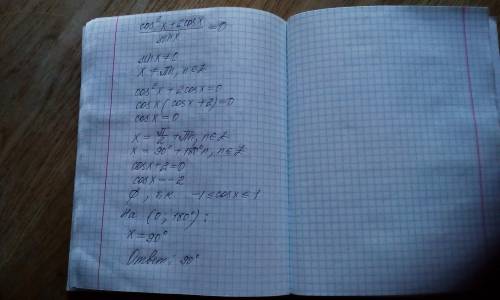 cos²x+2cosx
―――――― =0
sinx
sinx≠0
x ≠ πn, n∈Z
cos²x+2cosx=0
cosx(cosx+2)=0
cosx=0
x = π/2 +πn, n∈Z
x = 90°+180°n, n∈Z
cosx+2=0
cosx=-2
∅, т.к. -1≤cosx≤1
На (0; 180°):
x=90°
Ответ: 90°